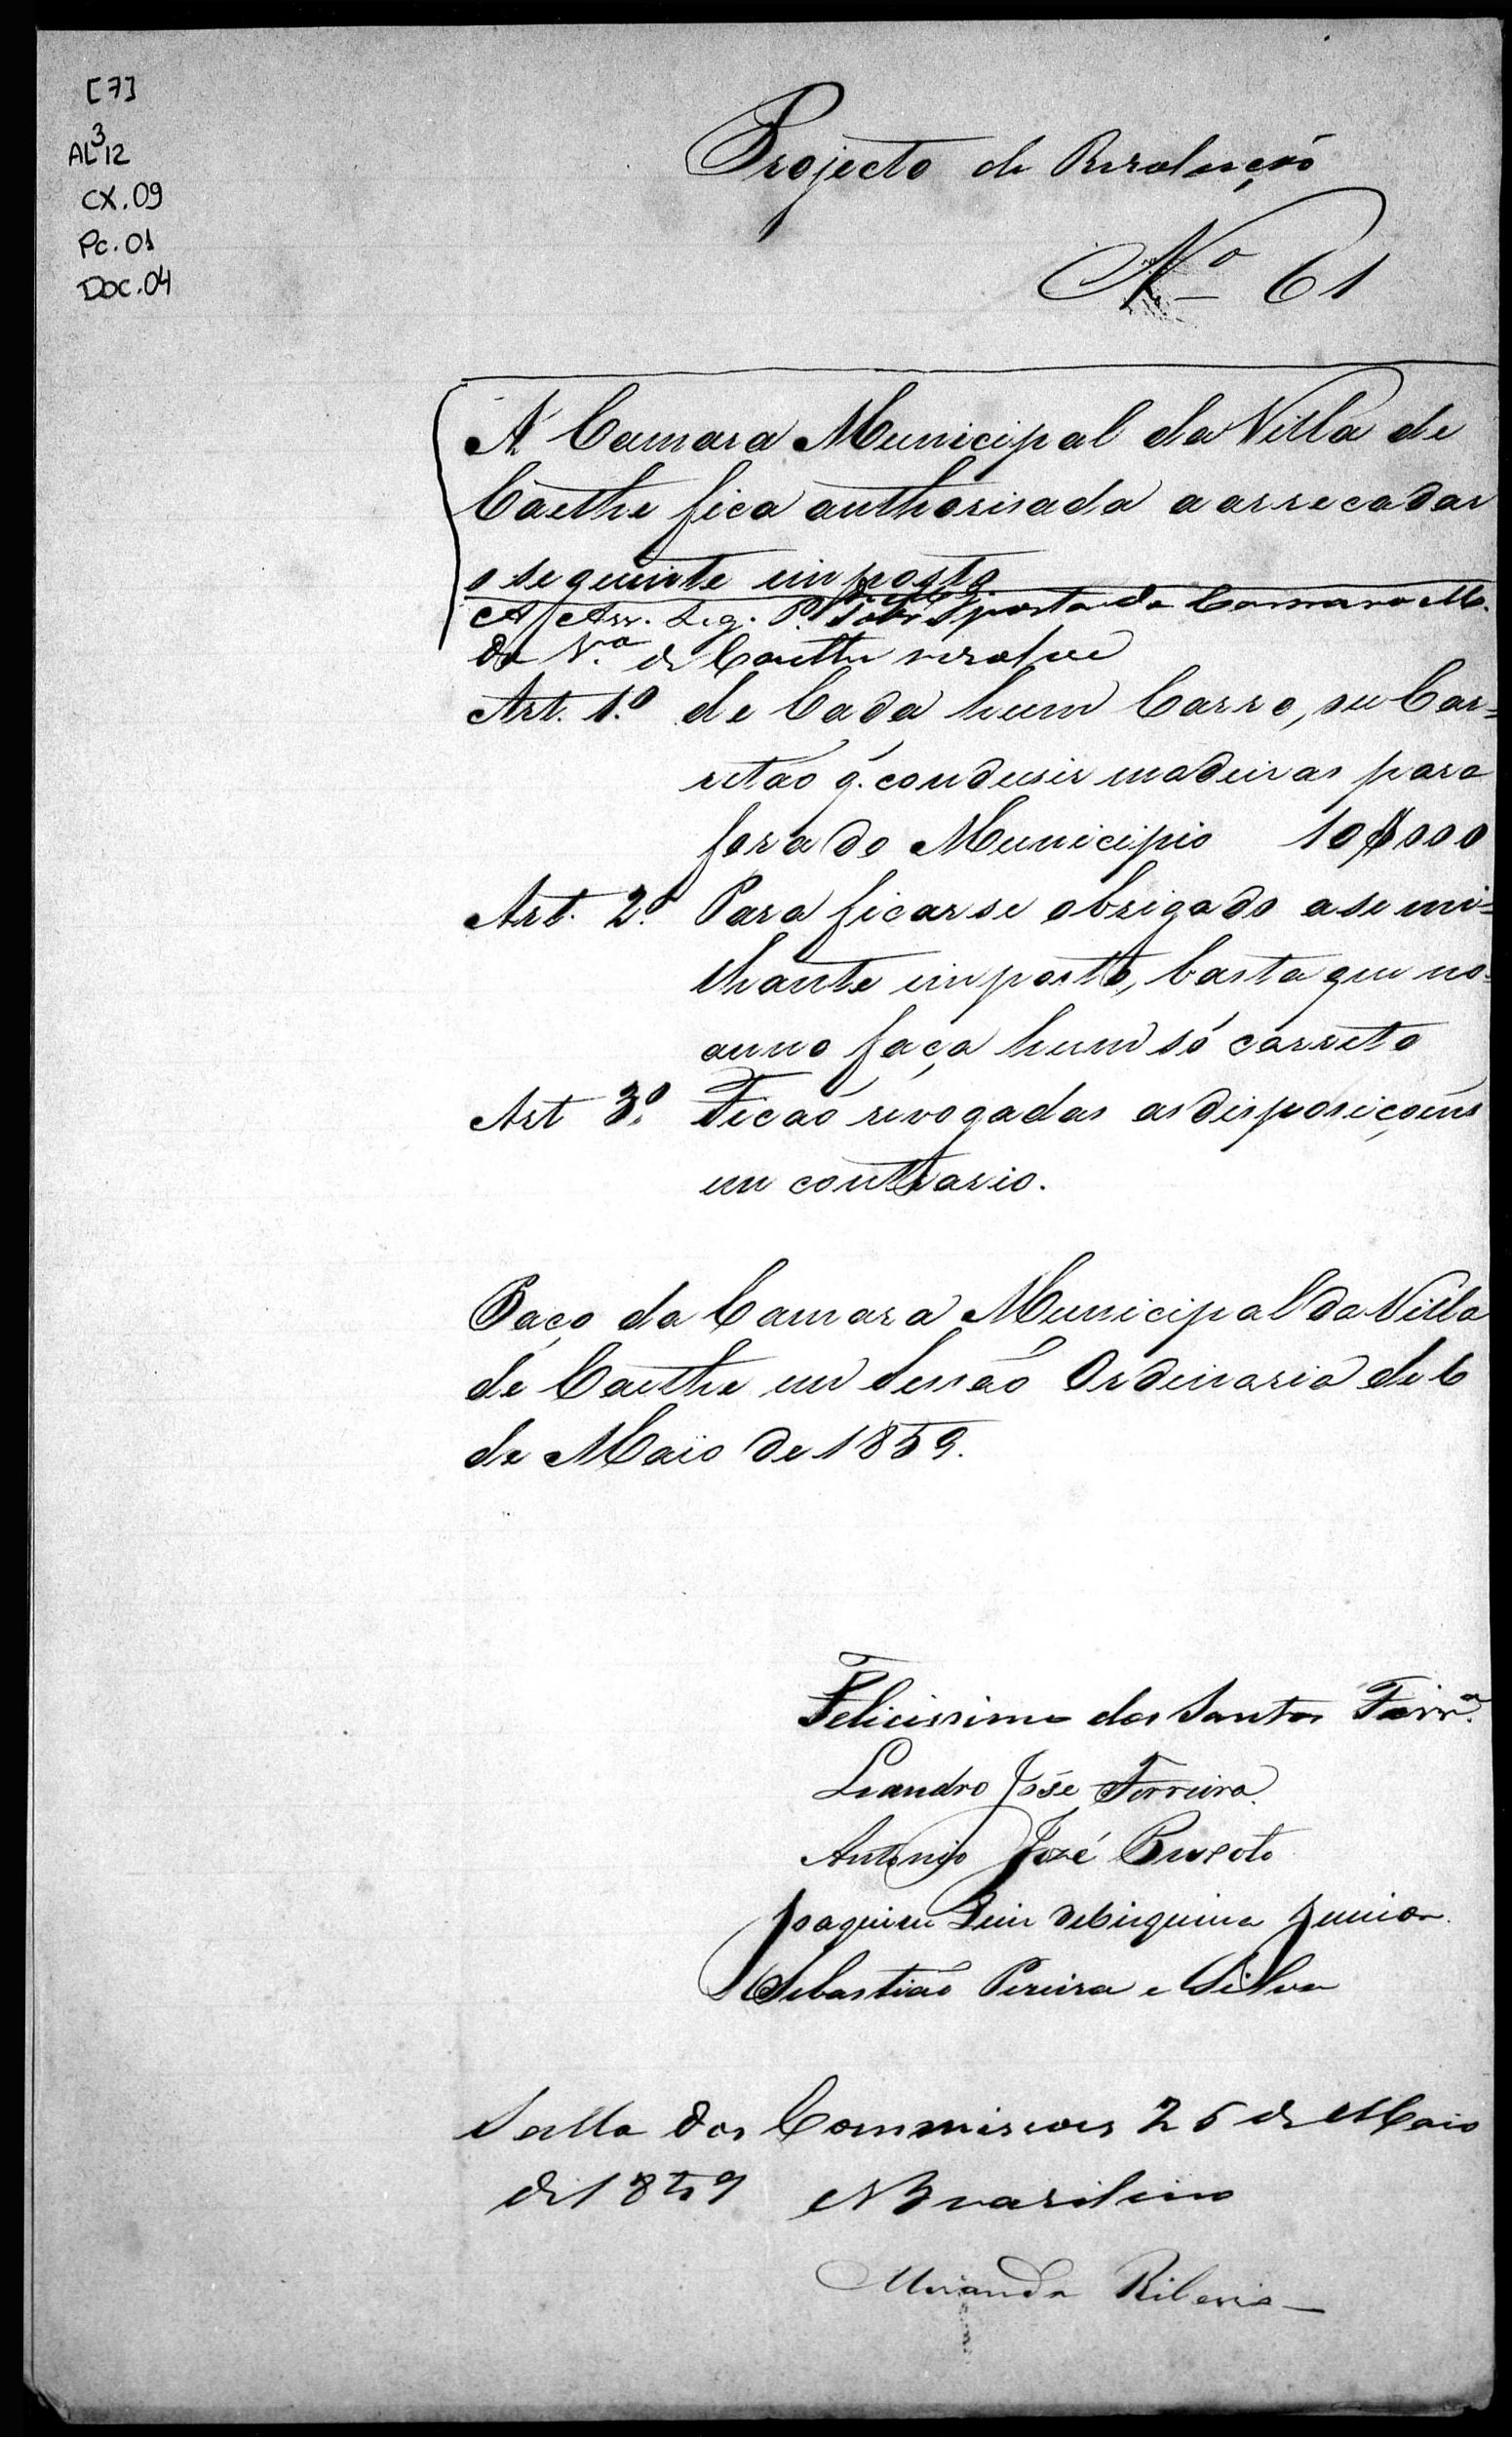 [7]
AL 3 12
CX.09
Pc.01
Doc.04
Projecto de Resolução
Nº 61
A Camara Municipal da Villa de
Caethe fica authorisada a arrecadar
o seguinte imposto
A Ass. Leg. P. sobre proposta da Camara M.
da V.a de Caethe resolve
Art. 1.º de Cada hum Carro, ou Car=
retão q. condusir madeiras para
fora do Municipio 10$000
Art. 2.º Para ficarse obrigado a semi=
lhante imposto, basta que no
anno faça hum só carreto
Art 3.º Ficão revogadas as disposiçoens
em contrario.
Paço da Camara Municipal da Villa
de Caethe em Sessão Ordinaria de 6
de Maio de 1859.
Felicissimo dos Santos Ferr.a
Leandro José Ferreira
Antonio José Peixoto
Joaquim Junior
Sebastião Pereira e Silva
Salla das Commissoes 26 de Maio
de 1859
Miranda Ribeiro